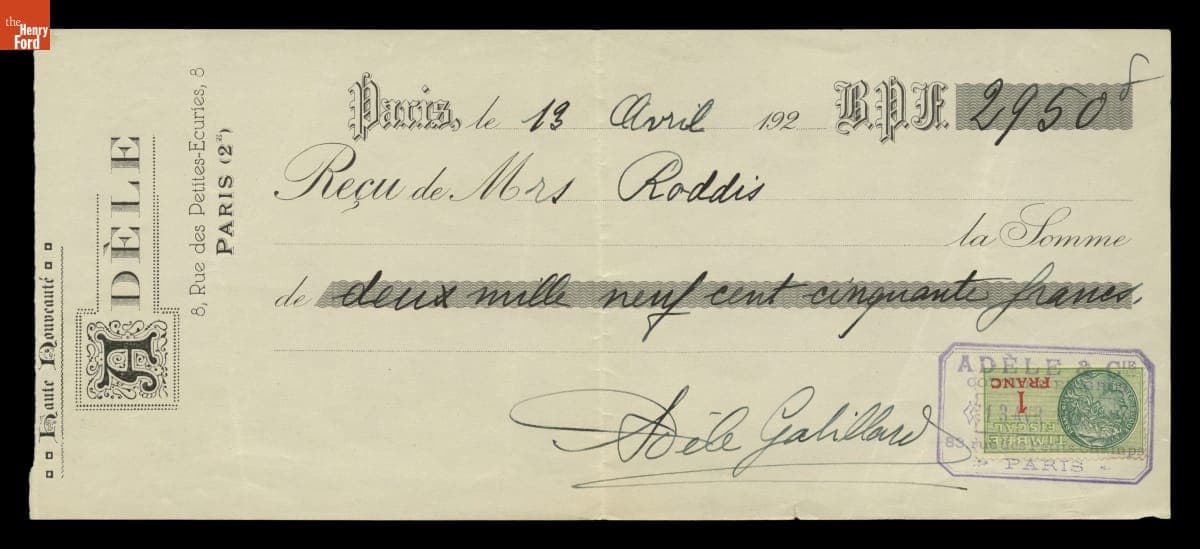 the
Henry
Ford
Haute Nouveauté
ADÈLE
8, Rue des Petites-Ecuries, 8
PARIS (2E)
Paris, le 13 Avril 192 B.P.F. 2950 f
Reçu de Mrs Roddis
la Somme
de deux mille neuf cent cinquante francs.
Adèle Gabillard
ADÈLE & CIE
1 FRANC
TIMBRE
FISCAL
PARIS